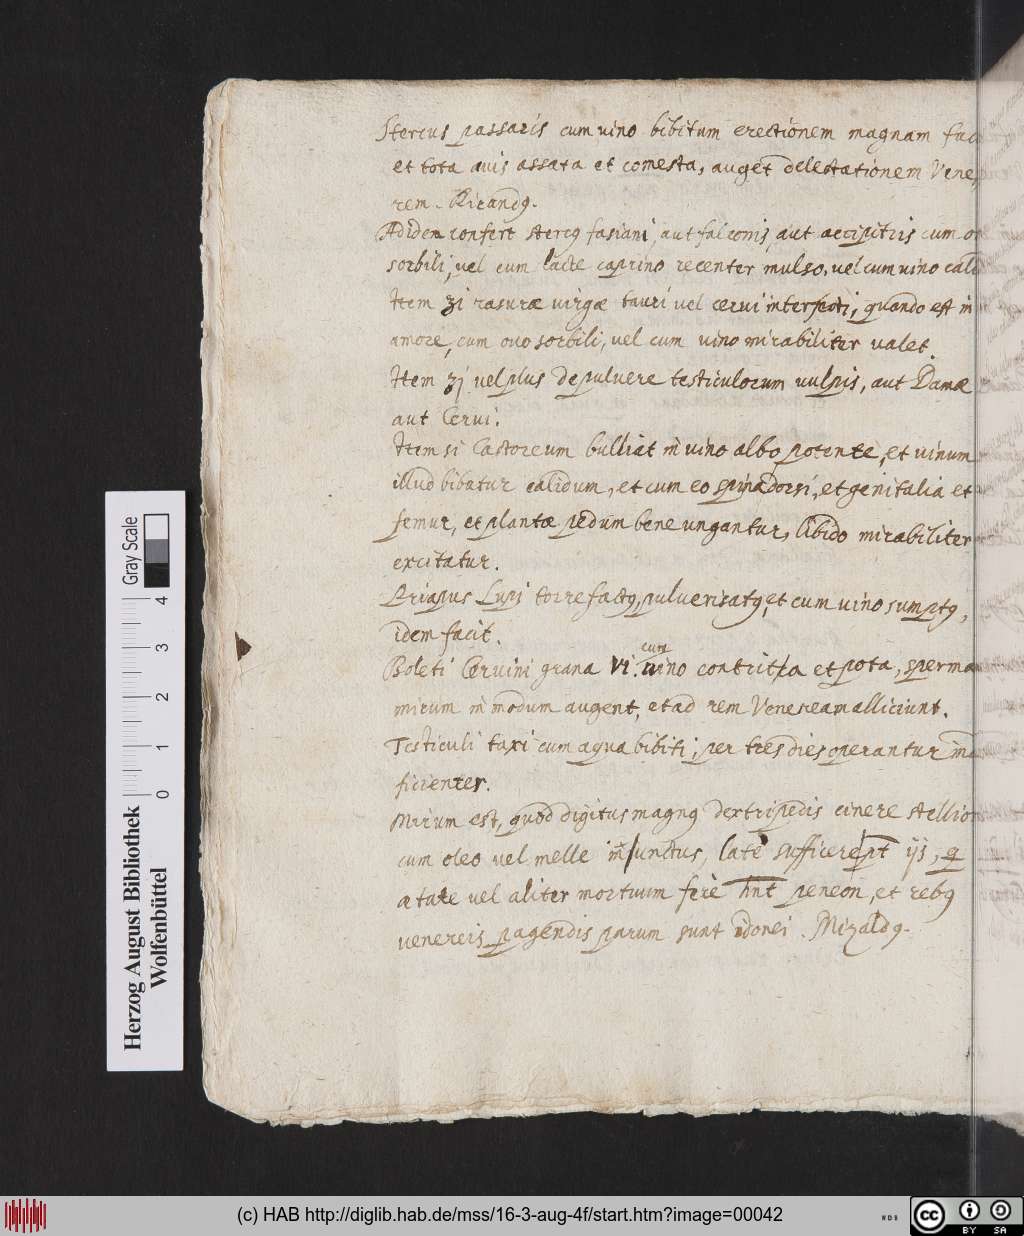 Stercus passaris cum vino bibitum erectionem magnam fac
et tota avis assata et comesta, auget delectationem Vene,
rem. Ricandꝰ.
Ad idem confert stercꝰ fasiani, aut falconis, aut accipitris cum o
sorbili, vel cum lacte caprino recenter mulso, vel cum vino cali
Item ʒi rasuræ virgæ tauri vel cervi interfecti, quando est in
amore, cum ovo sorbili, vel cum vino mirabiliter valet.
Item ʒj vel plus de pulvere testiculorum vulpis, aut Damæ
aut Cervi.
Item si Castoreum bulliat in vino albo potente, et vinum
illud bibatur calidum, et cum eo spina dorsi, et genitalia et
femur, et plantæ pedum bene ungantur, libido mirabiliter
excitatur.
Priapus Lupi torrefactꝰ, pulverisatꝰ, et cum vino sumptꝰ,
idem facit.
Boleti Cervini grana VI. cum vino contrita et pota, sperma
mirum in modum augent, et ad rem Veneream alliciunt.
Testiculi taxi cum aqua bibiti, per tres dies operantur
ficienter.
Mirum est, quod digitus magnꝰ dextri pedis cinere stellio
cum oleo vel melle unctus, late iis, q
ætate vel aliter mortuum ferè hnt peneon, et rebꝰ
venereis pagendis parum sunt idonei. Mizaldꝰ.
Gray Scale
0 1 2 3 4
Herzog August Bibliothek
Wolfenbüttel
(c) HAB http://diglib.hab.de/mss/16-3-aug-4f/start.htm?image=00042
WDB
cc BY SA